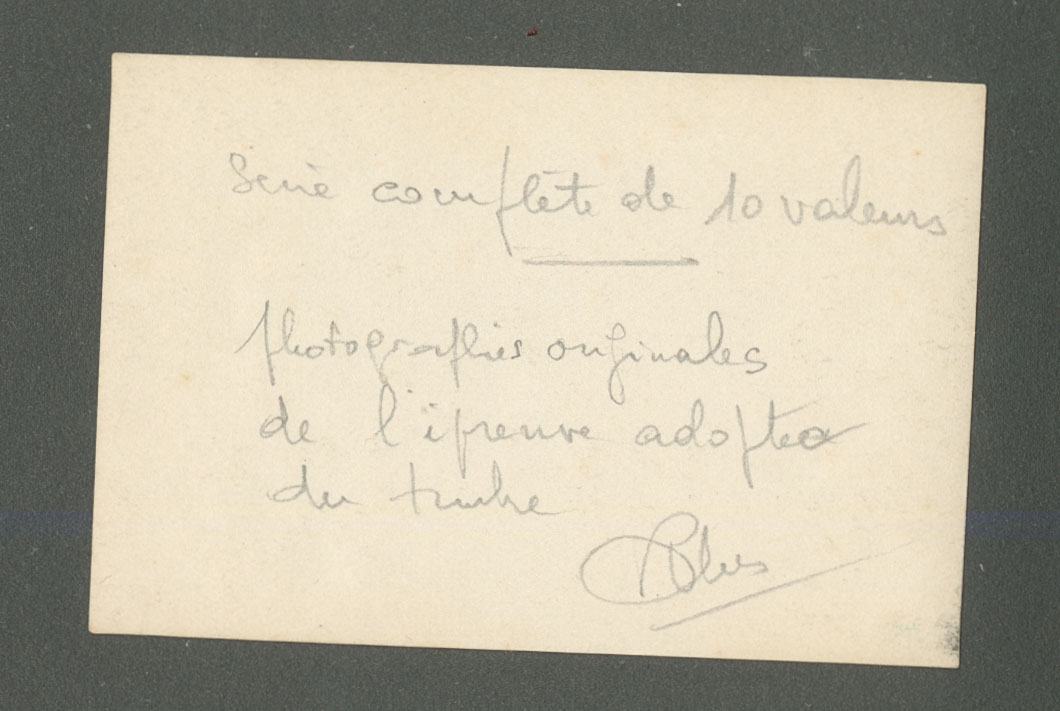 Serie complète de 10 valeurs
photographies originales
de l'épreuve adoptée
du timbre